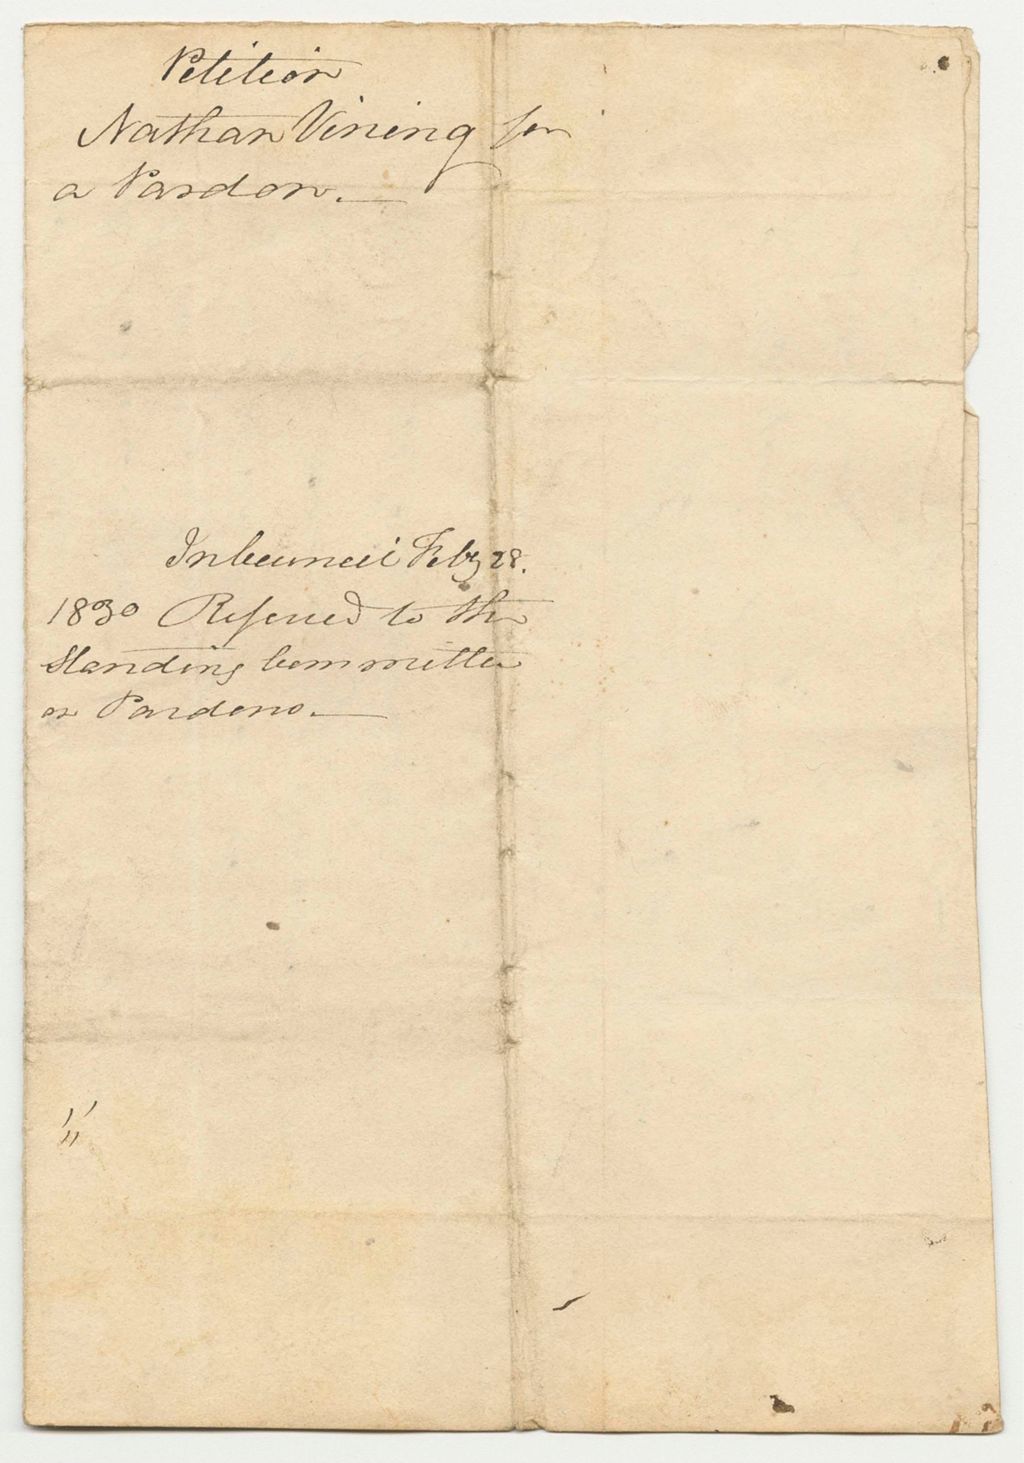 Petition
Nathan Vining for
a Pardon.
In Council Feby 28.
1830 Referred to the
Standing Committee
on Pardons.